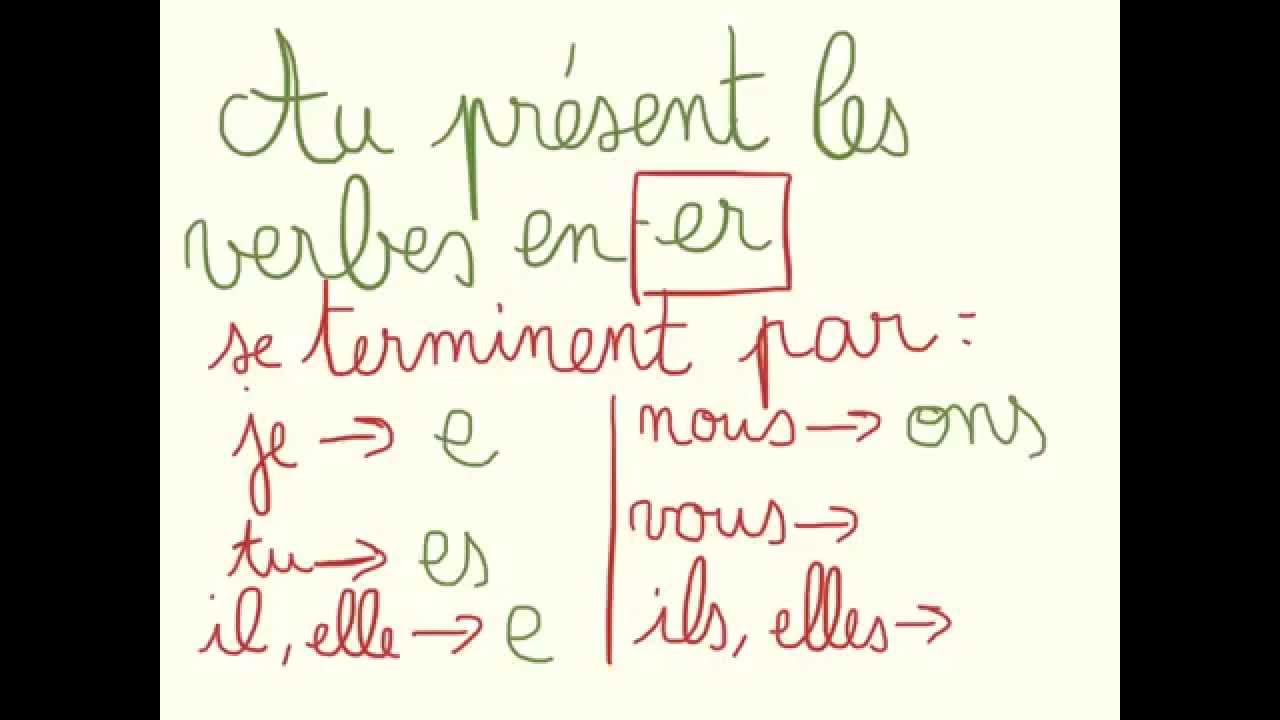 Au présent les
verbes en -er
se terminent par :
je → e
tu → es
il, elle → e
nous → ons
vous →
ils, elles →